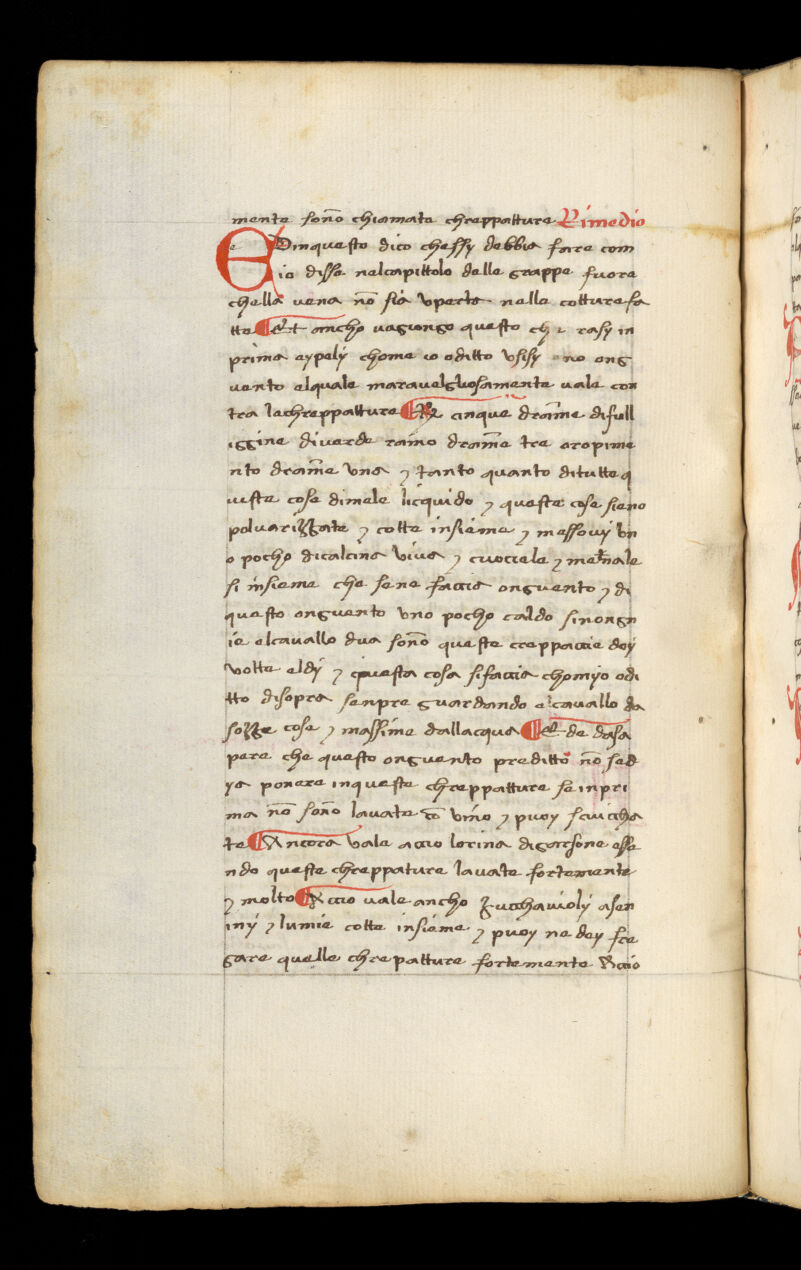 mente son̄o chiamate chreppatture Rimedio
E Dinquesto dico chessy debbia fare com
io dissi nelcapittolo delle grappe fuora
chella vena nō sia vperta nelle cotture fa
tte ¶ Et ancho vagiongo questo ch rasy in
prima eypely chome io oditto vsisy ono ong
uento elquale maravelgluosamente vale con
tra lachreppatture ¶ R cinque dram̄e difull
iggine diverde ram̄o dram̄e tre oropime
nto dram̄e vna ⁊ tanto quanto ditutte q
ueste cose dimele licquido ⁊ queste cose sieno
polvarizzate ⁊ cotte insieme ⁊ messovy vn
o pocho dicalcina viva ⁊ cuociele ⁊ men̄ale
si insieme che sene faccia onguento ⁊ di
questo onguento vno pocho caldo sinongn
ie elcavallo dua son̄o queste creppaccie doy
volte eldy ⁊ questa cosa sifaccia chomyo odi
tto disopra senpre guardando elcavallo da
sozze cose ⁊ massime dallacqua ¶ E de dasa
pere che questo onguento preditto nō sed
ya ponere inqueste chreppatture se inpri
ma nō son̄o lavate cō vino ⁊ puoy sciuccha
te ¶ Ancora vale accio lorina digarsone esse
ndo queste chreppature lavate fortemente
⁊ molto ¶ Accio vale ancho zucchavioly asen
iny ⁊ lumie cotte insieme ⁊ puoy ne dey fre
gare quelle chrepatture fortemente Accio